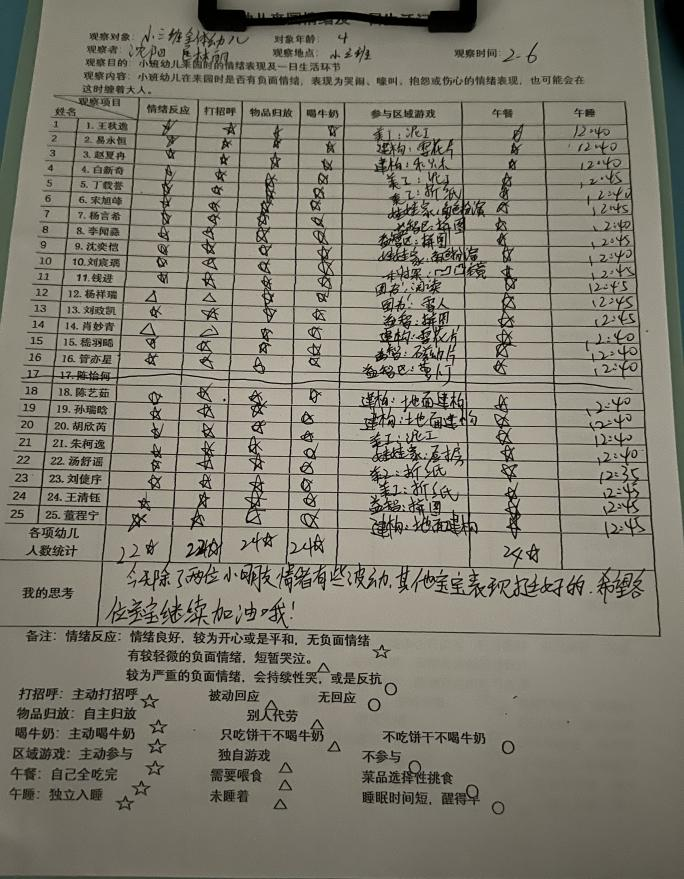 幼儿来园情绪及一日生活
观察对象：小三班全体幼儿 对象年龄：4
观察者： 观察地点：小三班 观察时间：2-6
观察目的：小班幼儿来园时的情绪表现及一日生活环节
观察内容：小班幼儿在来园时是否有负面情绪，表现为哭闹、嚎叫、抱怨或伤心的情绪表现，也可能会在
这时缠着大人。
观察项目 姓名 情绪反应 打招呼 物品归放 喝牛奶 参与区域游戏 午餐 午睡
1 1.王秋逸 ☆ ☆ ☆ ☆ 美工：泥工 ☆ 12:40
2 2.易永恒 ☆ ☆ ☆ ☆ 建构：雪花片 ☆ 12:40
3 3.赵夏冉 ☆ ☆ ☆ ☆ 建构：积木 ☆ 12:40
4 4.白新奇 ☆ ☆ ☆ ☆ 美工：泥工 ☆ 12:45
5 5.丁载誉 ☆ ☆ ☆ ☆ 美工：折纸 ☆ 12:40
6 6.宋旭峰 ☆ ☆ ☆ ☆ 娃娃家：角色扮演 ☆ 12:45
7 7.杨言希 ☆ ☆ ☆ ☆ 益智区：拼图 ☆ 12:40
8 8.李闻淼 ☆ ☆ ☆ ☆ 益智区：拼图 ☆ 12:45
9 9.沈奕楷 ☆ ☆ ☆ ☆ 娃娃家：角色扮演 ☆ 12:40
10 10.刘宸瑀 ☆ ☆ ☆ ☆ ☆ 12:45
11 11.钱进 ☆ ☆ ☆ ☆ 图书：阅读 ☆ 12:45
12 12.杨祥瑞 △ △ ☆ ☆ 图书： ☆ 12:45
13 13.刘政凯 ☆ ☆ ☆ ☆ 益智：拼图 ☆ 12:45
14 14.肖妙青 △ △ ☆ ☆ 建构：雪花片 ☆ 12:40
15 15.嵇羽晞 ☆ ☆ ☆ ☆ 益智：磁力片 ☆ 12:40
16 16.管亦星 ☆ ☆ ☆ ☆ 益智区： ☆ 12:40
17 17.陈怡何
18 18.陈艺茹 ☆ ☆ ☆ ☆ 建构：地面建构 ☆ 12:40
19 19.孙瑞晗 ☆ ☆ ☆ ☆ 建构：地面建构 ☆ 12:40
20 20.胡欣芮 ☆ ☆ ☆ ☆ 美工：泥工 ☆ 12:40
21 21.朱柯逸 ☆ ☆ ☆ ☆ 娃娃家：厨房 ☆ 12:40
22 22.汤舒遥 ☆ ☆ ☆ ☆ 美工：折纸 ☆ 12:35
23 23.刘倢序 ☆ ☆ ☆ ☆ 美工：折纸 ☆ 12:45
24 24.王清钰 ☆ ☆ ☆ ☆ 益智：拼图 ☆ 12:45
25 25.董程宁 ☆ ☆ ☆ ☆ 建构：地面建构 ☆ 12:45
各项幼儿人数统计 22☆ 22☆ 24☆ 24☆ 24☆
我的思考 今天除了两位小朋友情绪有些波动，其他宝宝表现挺好的，希望各
位宝宝继续加油哦！
备注：情绪反应：情绪良好，较为开心或是平和，无负面情绪 ☆
有较轻微的负面情绪，短暂哭泣。△
较为严重的负面情绪，会持续性哭，或是反抗 ○
打招呼：主动打招呼 ☆ 被动回应 △ 无回应 ○
物品归放：自主归放 ☆ 别人代劳 △
喝牛奶：主动喝牛奶 ☆ 只吃饼干不喝牛奶 △ 不吃饼干不喝牛奶 ○
区域游戏：主动参与 ☆ 独自游戏 △ 不参与 ○
午餐：自己全吃完 ☆ 需要喂食 △ 菜品选择性挑食 ○
午睡：独立入睡 ☆ 未睡着 △ 睡眠时间短，醒得早 ○